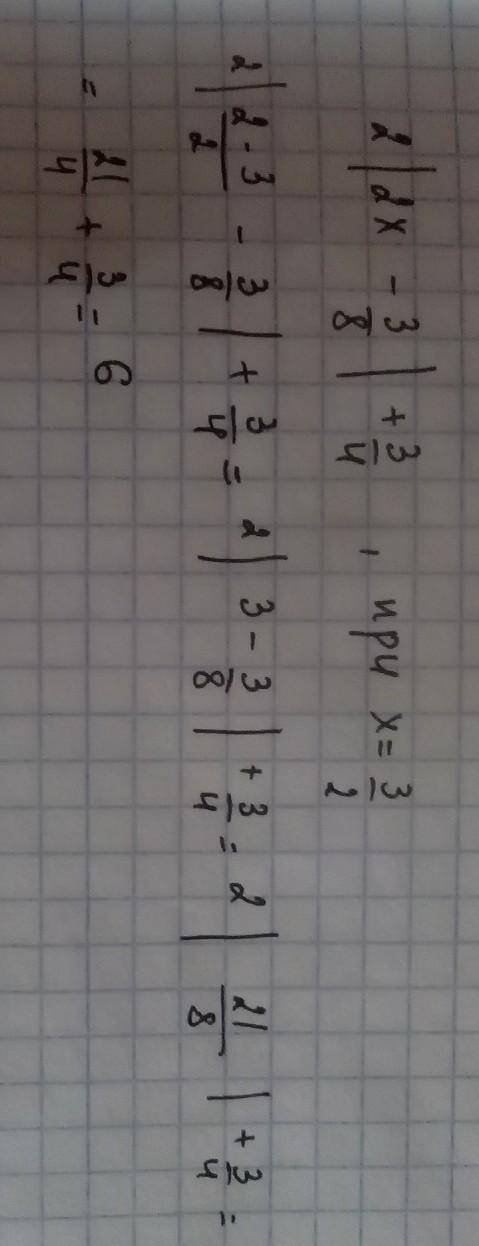 2|2x - 3/8| + 3/4 , при x = 3/2
2|2·3/2 - 3/8| + 3/4 = 2|3 - 3/8| + 3/4 = 2|21/8| + 3/4 =
= 21/4 + 3/4 = 6